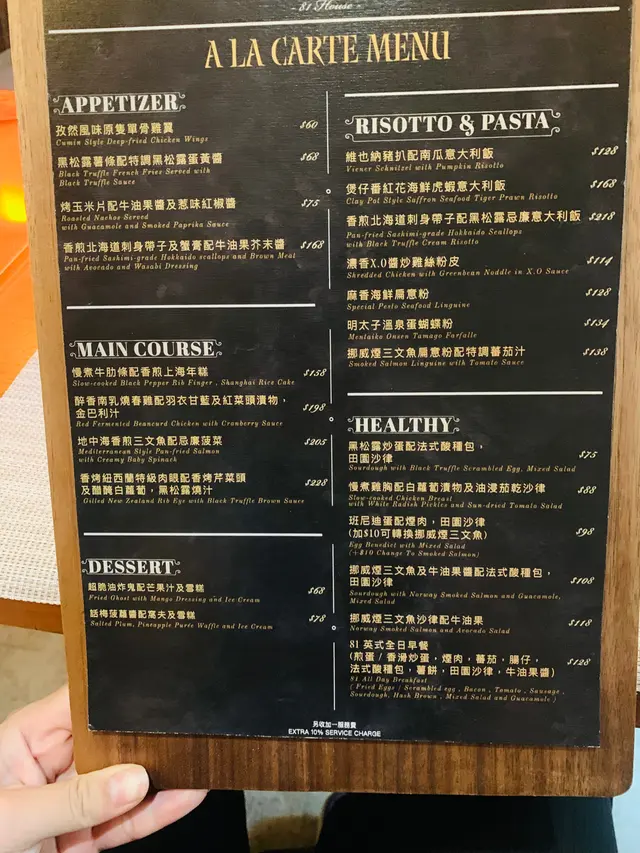 - 81 House -
A LA CARTE MENU
APPETIZER
孜然風味原隻單骨雞翼 $60
Cumin Style Deep-fried Chicken Wings
黑松露薯條配特調黑松露蛋黃醬 $68
Black Truffle French Fries Served with
Black Truffle Sauce
烤玉米片配牛油果醬及惹味紅椒醬 $75
Roasted Nachos Served
with Guacamole and Smoked Paprika Sauce
香煎北海道刺身帶子及蟹膏配牛油果芥末醬 $168
Pan-fried Sashimi-grade Hokkaido scallops and Brown Meat
with Avocado and Wasabi Dressing
MAIN COURSE
慢煮牛肋條配香煎上海年糕 $158
Slow-cooked Black Pepper Rib Finger , Shanghai Rice Cake
醉香南乳燒春雞配羽衣甘藍及紅菜頭漬物，
金巴利汁 $198
Red Fermented Beancurd Chicken with Cranberry Sauce
地中海香煎三文魚配忌廉菠菜 $205
Mediterranean Style Pan-fried Salmon
with Creamy Baby Spinach
香烤紐西蘭特級肉眼配香烤芹菜頭
及醋醃白蘿蔔，黑松露燒汁 $228
Gilled New Zealand Rib Eye with Black Truffle Brown Sauce
DESSERT
超脆油炸鬼配芒果汁及雪糕 $68
Fried Ghost with Mango Dressing and Ice Cream
話梅菠蘿醬配窩夫及雪糕 $78
Salted Plum, Pineapple Purée Waffle and Ice Cream
RISOTTO & PASTA
維也納豬扒配南瓜意大利飯 $128
Viener Schnitzel with Pumpkin Risotto
煲仔番紅花海鮮虎蝦意大利飯 $168
Clay Pot Style Saffron Seafood Tiger Prawn Risotto
香煎北海道刺身帶子配黑松露忌廉意大利飯 $218
Pan-fried Sashimi-grade Hokkaido Scallops
with Black Truffle Cream Risotto
濃香X.O醬炒雞絲粉皮 $114
Shredded Chicken with Greenbean Noddle in X.O Sauce
麻香海鮮扁意粉 $128
Special Pesto Seafood Linguine
明太子溫泉蛋蝴蝶粉 $134
Mentaiko Onsen Tamago Farfalle
挪威煙三文魚扁意粉配特調蕃茄汁 $138
Smoked Salmon Linguine with Tomato Sauce
HEALTHY
黑松露炒蛋配法式酸種包，
田園沙律 $75
Sourdough with Black Truffle Scrambled Egg, Mixed Salad
慢煮雞胸配白蘿蔔漬物及油浸茄乾沙律 $88
Slow-cooked Chicken Breast
with White Radish Pickles and Sun-dried Tomato Salad
班尼迪蛋配煙肉，田園沙律
(加$10可轉換挪威煙三文魚) $98
Egg Benedict with Mixed Salad
(+$10 Change To Smoked Salmon)
挪威煙三文魚及牛油果醬配法式酸種包，
田園沙律 $108
Sourdough with Norway Smoked Salmon and Guacamole,
Mixed Salad
挪威煙三文魚沙律配牛油果 $118
Norway Smoked Salmon and Avocado Salad
81 英式全日早餐
(煎蛋 / 香滑炒蛋，煙肉，蕃茄，腸仔，
法式酸種包，薯餅，田園沙律，牛油果醬) $128
81 All Day Breakfast
( Fried Eggs / Scrambled egg , Bacon , Tomato , Sausage ,
Sourdough, Hash Brown , Mixed Salad and Guacamole )
另收加一服務費
EXTRA 10% SERVICE CHARGE